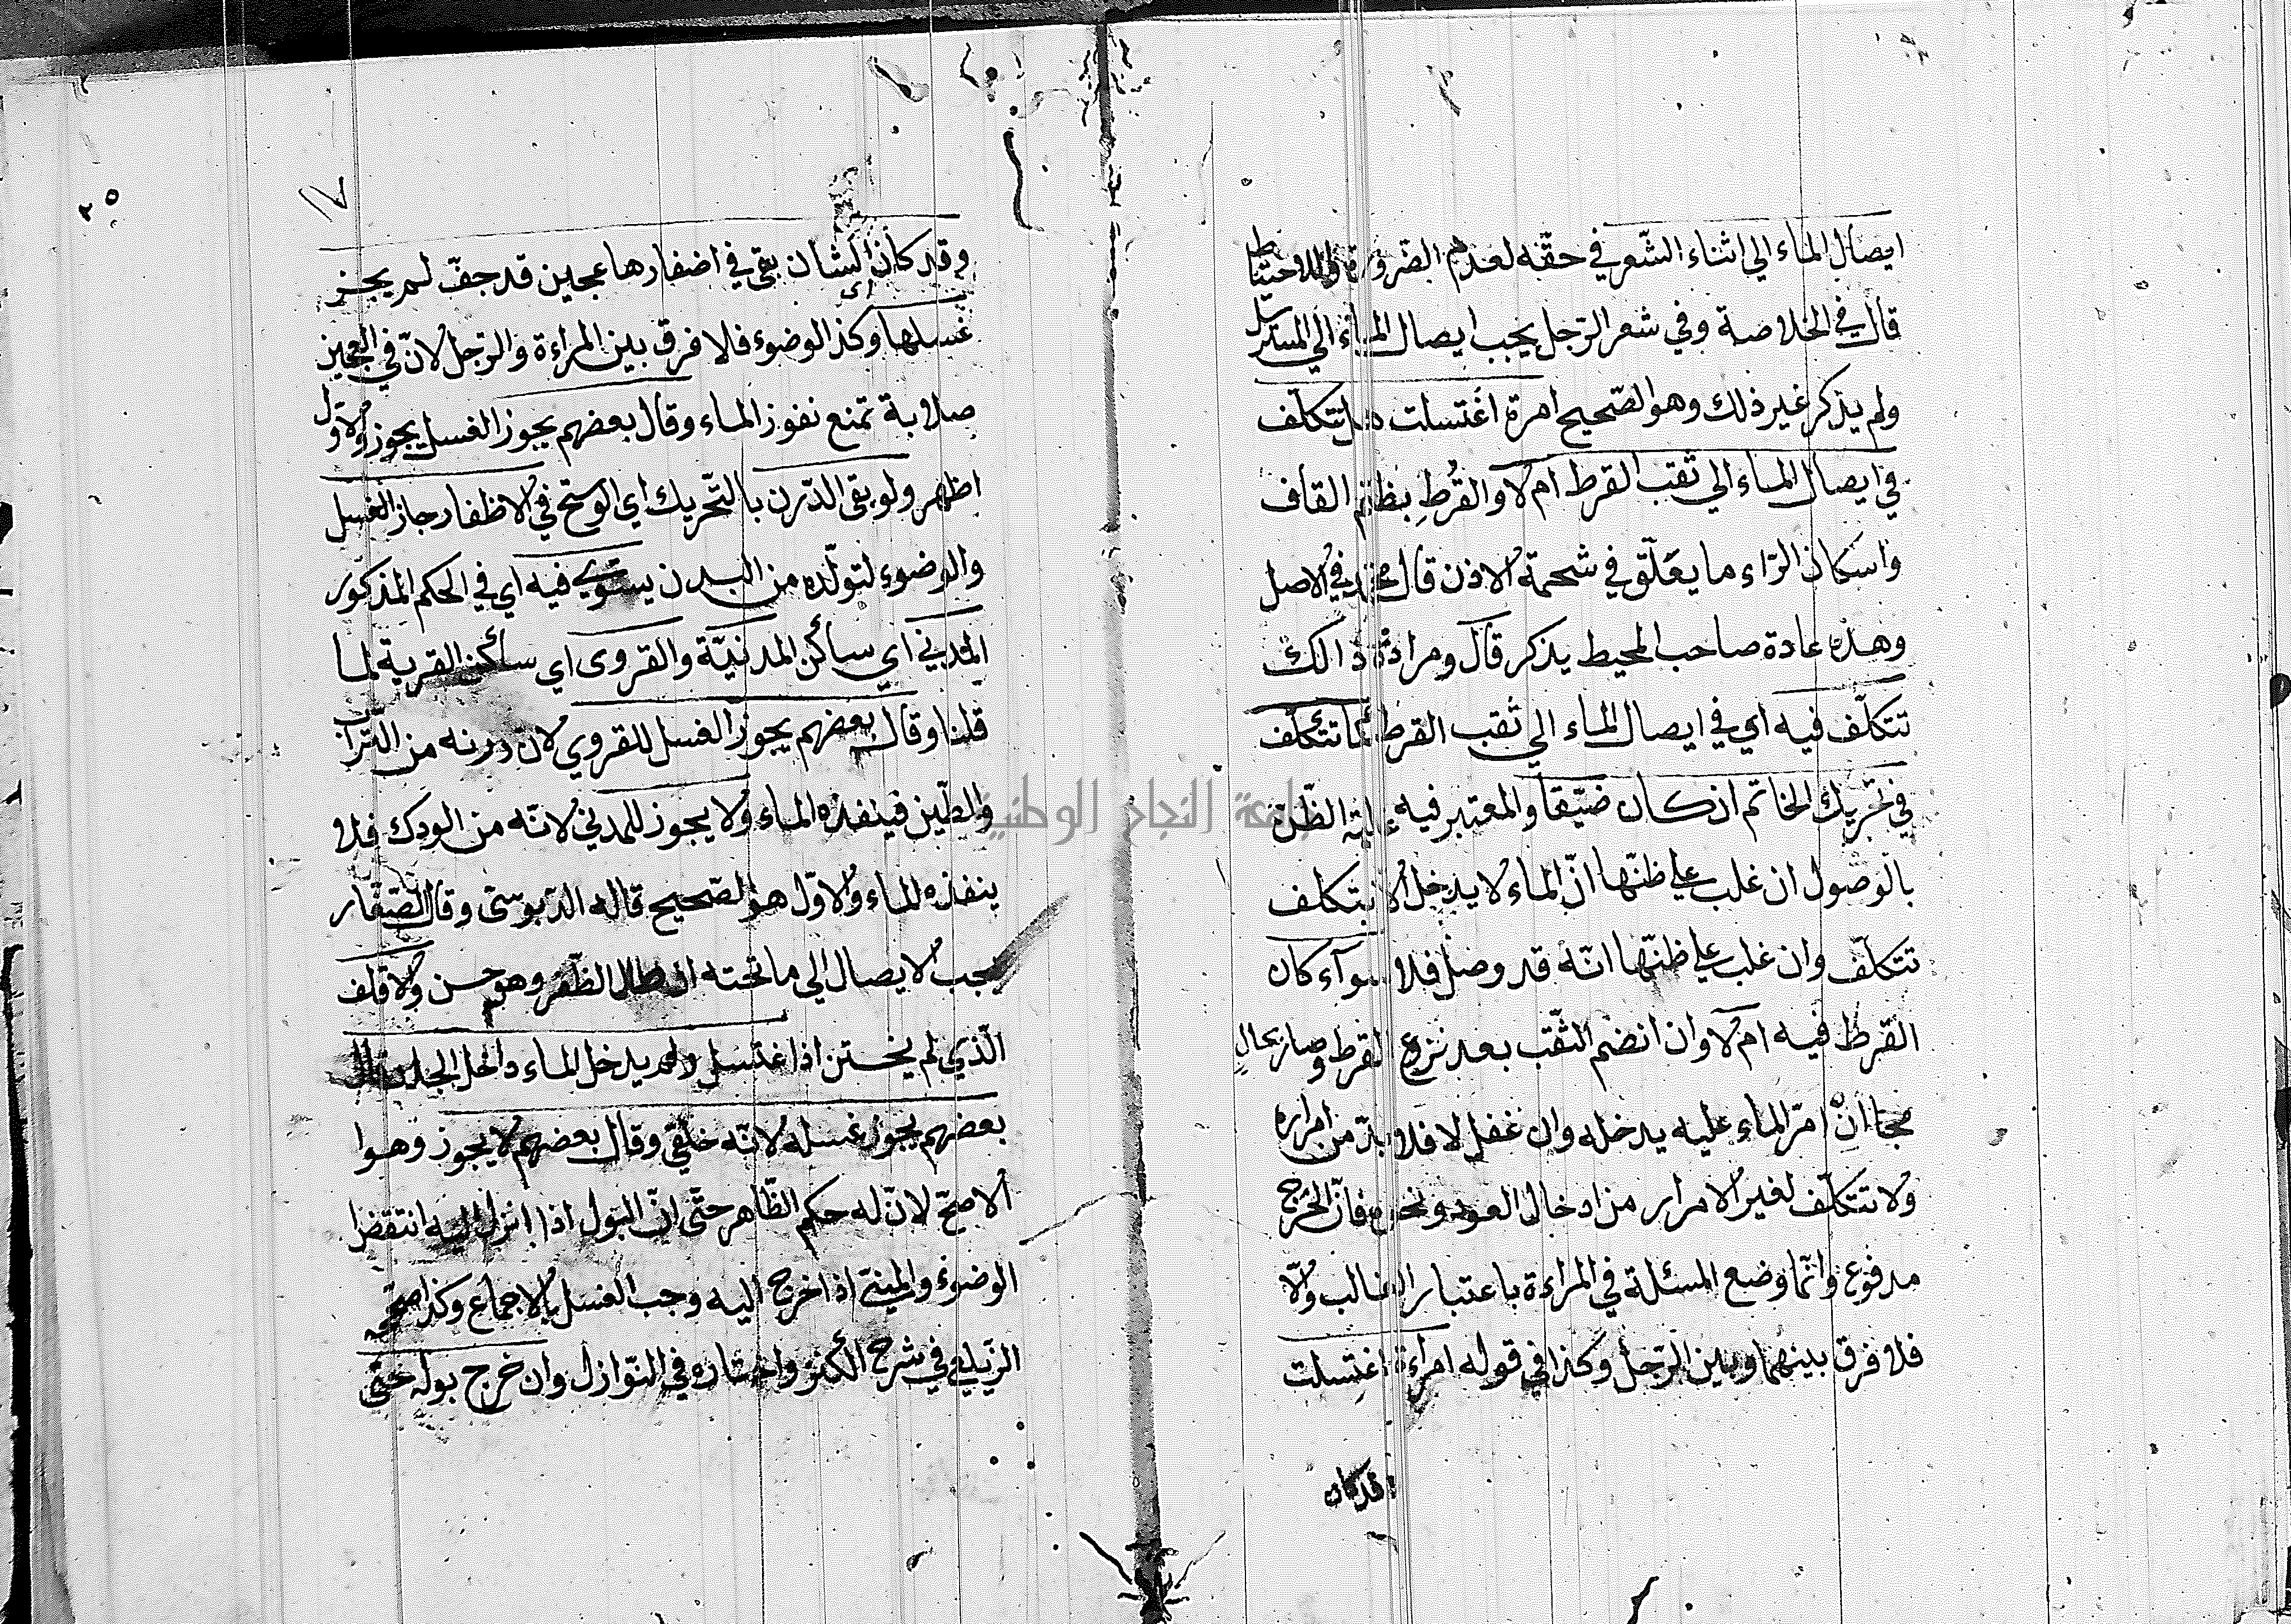 ايصال الماء الي اثناء الشعر في حقّه لعدم الضرورة وللاحتياط
قال في الخلاصة وفي شعر الرّجل يجب ايصال الماء الي المسترسل
ولم يذكر غير ذلك وهو الصّحيح امرة اغتسلت هل تتكلّف
في ايصال الماء الي ثقب القرط ام لا والقُرطِ بظم القاف
واسكان الرّاء ما يعّلق في شحمة الاذن قال محمد في الاصل
وهذه عادة صاحب المحيط يذكر قال ومراده ذالك
تتكلّف فيه اي في ايصال الماء الي ثقب القرط كما تتكلّف
في تحريك الخاتم ان كان ضيّقا والمعتبر فيه غلبة الظّن
بالوصول ان غلب علي ظنّها انّ الماء لا يدخل الا بتكلف
تتكلّف وان غلب علي ظنّها انّه قد وصل فلا سوآء كان
القرط فيه ام لا وان انضم الثّقب بعد نزع القرط وصار بحالٍ
ان امرّ الماء عليه يدخله وان غفل لا فلا بدّ من امراره
ولا تتكلّف لغير الامرار من ادخال العود ونحوه فانّ الحرج
مدفوع وانّما وضع المسئلة في المراءة باعتبار الغالب والّا
فلا فرق بينهما وبين الرّجل وكذا في قوله امراءة اغتسلت
وقد كان
جامعة النجاح الوطنية
١٧
٢٥
وقد كان الشان بقي في اضفارها عجين قد جفّ لم يجز
غسلها وكذا الوضوء فلا فرق بين المراءة والرّجل لانّ في العجين
صلابة تمنع نفوز الماء وقال بعضهم يجوز الغسل يجوز والاول
اظهر ولو بقي الدّرن بالتّحريك اي الوسخ في الاظفار جاز الغسل
والوضوء لتولّده من البدن يستوي فيه اي في الحكم المذكور
المدني اي ساكن المدنيّة والقروى اي ساكن القرية لما
قلنا وقال بعضهم يجوز الغسل للقروي لان درنه من التّراب
والطّين فينفذه الماء ولا يجوز للمدني لانّه من الودك فلا
ينفذه الماء والاوّل هو الصّحيح قاله الدّبوسّى وقال الصّفّار
يجب الايصال الي ما تحته ان طال الظّفر وهو حسن والاقلف
الّذي لم يختتن اذا اغتسل ولم يدخل الماء داخل الجلدة قال
بعضهم يجوز غسله لانّه خلقي وقال بعضهم لا يجوز وهوا
الاصحّ لانّ له حكم الظّاهر حتّى انّ البول اذا انزل اليه انتقض
الوضوء والمنيّ اذا خرج اليه وجب الغسل بالاجماع وكذا صحّحه
الزيلعي في شرح الكنز واختاره في النّوازل وان خرج بوله حتّى